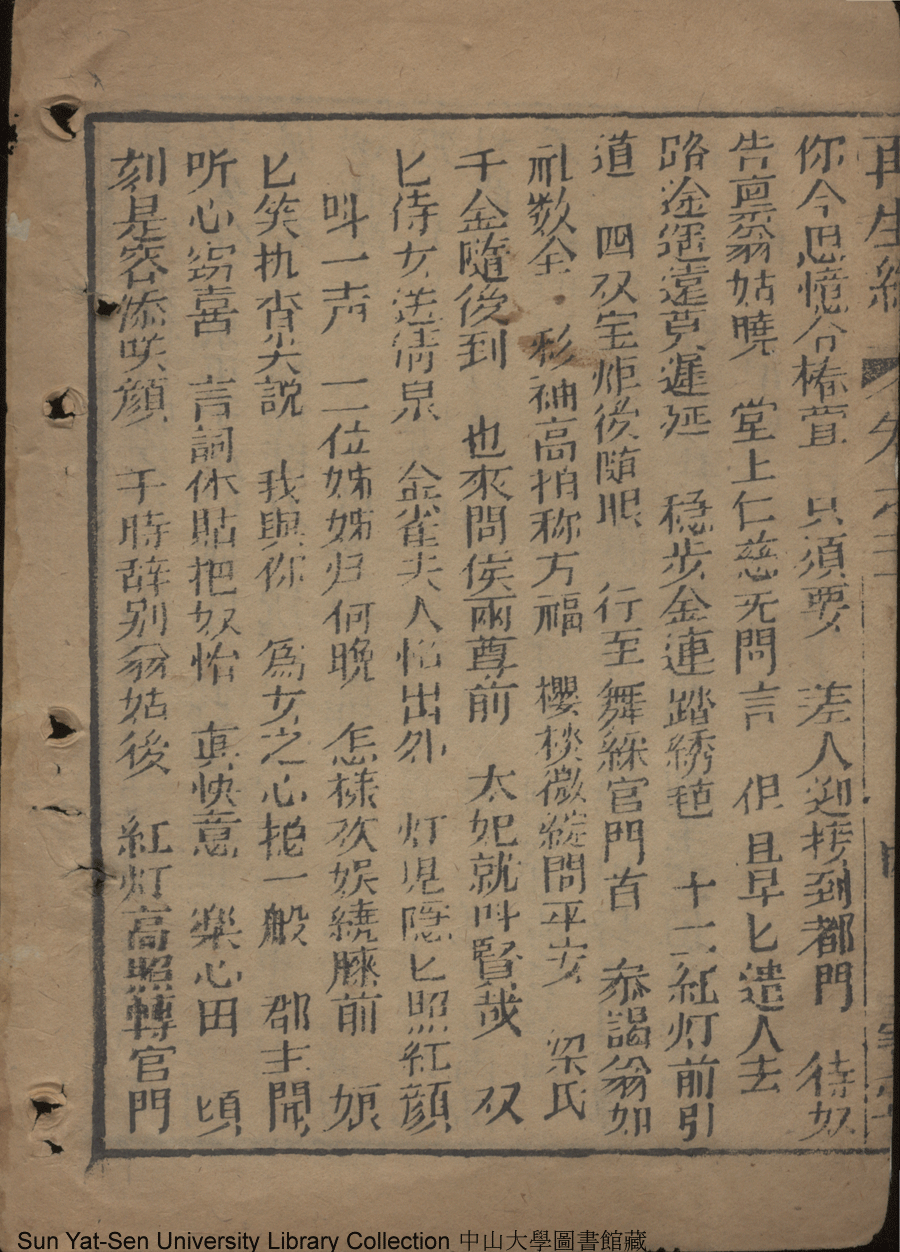 再生緣 卷之
你今思憶令椿萱 只須要 差人迎接到都門 待奴
告禀翁姑曉 堂上仁慈无問言 但且早匕遣人去
路途遥遠莫遲延 穩步金連踏綉毡 十二紅灯前引
道 四双宝炬後随眼 行至舞綵官門首 恭謁翁姑
礼数全 彩袖高拍称万福 櫻桃微綻問平安 梁氏
千金隨後到 也來問侯兩尊前 太妃就叫賢哉 双
匕侍女送清泉 金雀夫人怡出外 灯児隠匕照紅顔
叫一声 二位姊姊归何晚 怎樣欢娱繞膝前 娘
匕笑执杳尖說 我與你 為女之心捴一般 郡主聞
听心窃喜 言詞休貼把奴怡 真快意 樂心田 頃
刻是容添咲顔 于時辞别翁姑後 紅灯高照轉官門
Sun Yat-Sen University Library Collection 中山大學圖書館藏